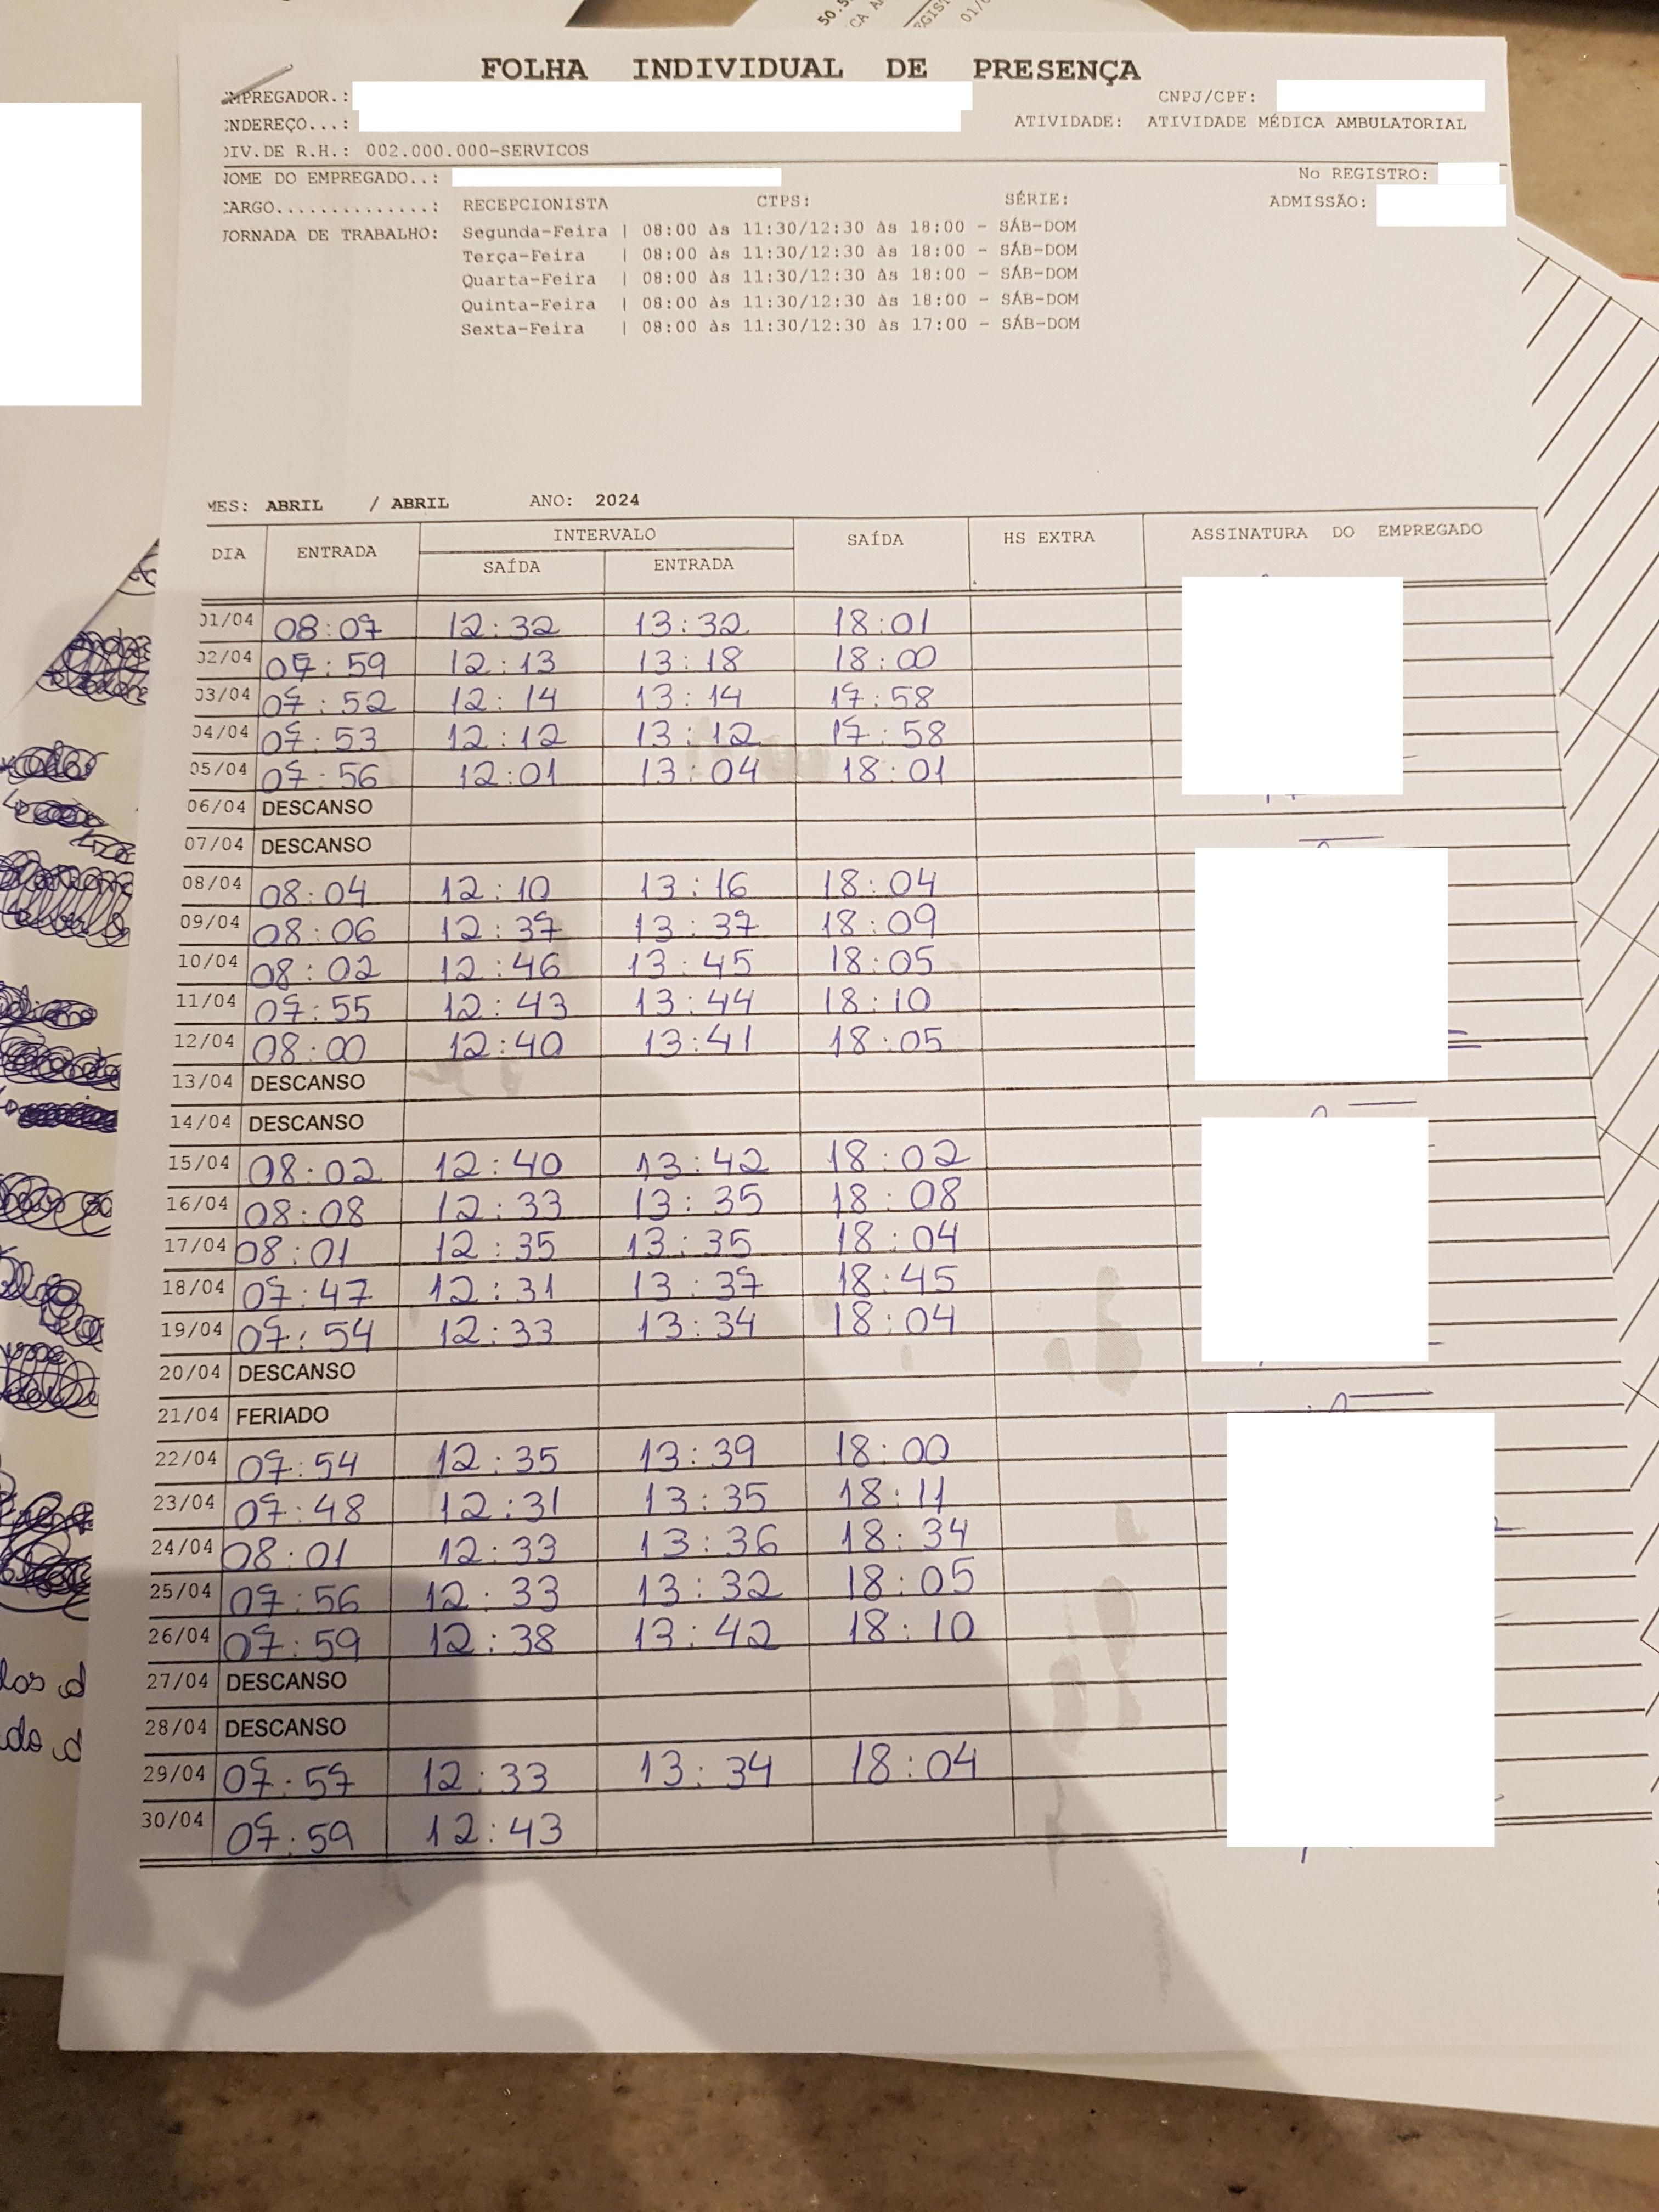 FOLHA INDIVIDUAL DE PRESENÇA
MPREGADOR.: CNPJ/CPF:
NDEREÇO...: ATIVIDADE: ATIVIDADE MÉDICA AMBULATORIAL
DIV.DE R.H.: 002.000.000-SERVICOS
NOME DO EMPREGADO..: No REGISTRO:
CARGO..............: RECEPCIONISTA CTPS: SÉRIE: ADMISSÃO:
JORNADA DE TRABALHO: Segunda-Feira | 08:00 às 11:30/12:30 às 18:00 - SÁB-DOM
Terça-Feira | 08:00 às 11:30/12:30 às 18:00 - SÁB-DOM
Quarta-Feira | 08:00 às 11:30/12:30 às 18:00 - SÁB-DOM
Quinta-Feira | 08:00 às 11:30/12:30 às 18:00 - SÁB-DOM
Sexta-Feira | 08:00 às 11:30/12:30 às 17:00 - SÁB-DOM
MES: ABRIL / ABRIL ANO: 2024
DIA ENTRADA INTERVALO SAÍDA HS EXTRA ASSINATURA DO EMPREGADO
SAÍDA ENTRADA
01/04 08:07 12:32 13:32 18:01
02/04 07:59 12:13 13:18 18:00
03/04 07:52 12:14 13:14 17:58
04/04 07:53 12:12 13:12 17:58
05/04 07:56 12:01 13:04 18:01
06/04 DESCANSO
07/04 DESCANSO
08/04 08:04 12:10 13:16 18:04
09/04 08:06 12:37 13:37 18:09
10/04 08:02 12:46 13:45 18:05
11/04 07:55 12:43 13:44 18:10
12/04 08:00 12:40 13:41 18:05
13/04 DESCANSO
14/04 DESCANSO
15/04 08:02 12:40 13:42 18:02
16/04 08:08 12:33 13:35 18:08
17/04 08:01 12:35 13:35 18:04
18/04 07:47 12:31 13:37 18:45
19/04 07:54 12:33 13:34 18:04
20/04 DESCANSO
21/04 FERIADO
22/04 07:54 12:35 13:39 18:00
23/04 07:48 12:31 13:35 18:11
24/04 08:01 12:33 13:36 18:34
25/04 07:56 12:33 13:32 18:05
26/04 07:59 12:38 13:42 18:10
27/04 DESCANSO
28/04 DESCANSO
29/04 07:57 12:33 13:34 18:04
30/04 07:59 12:43